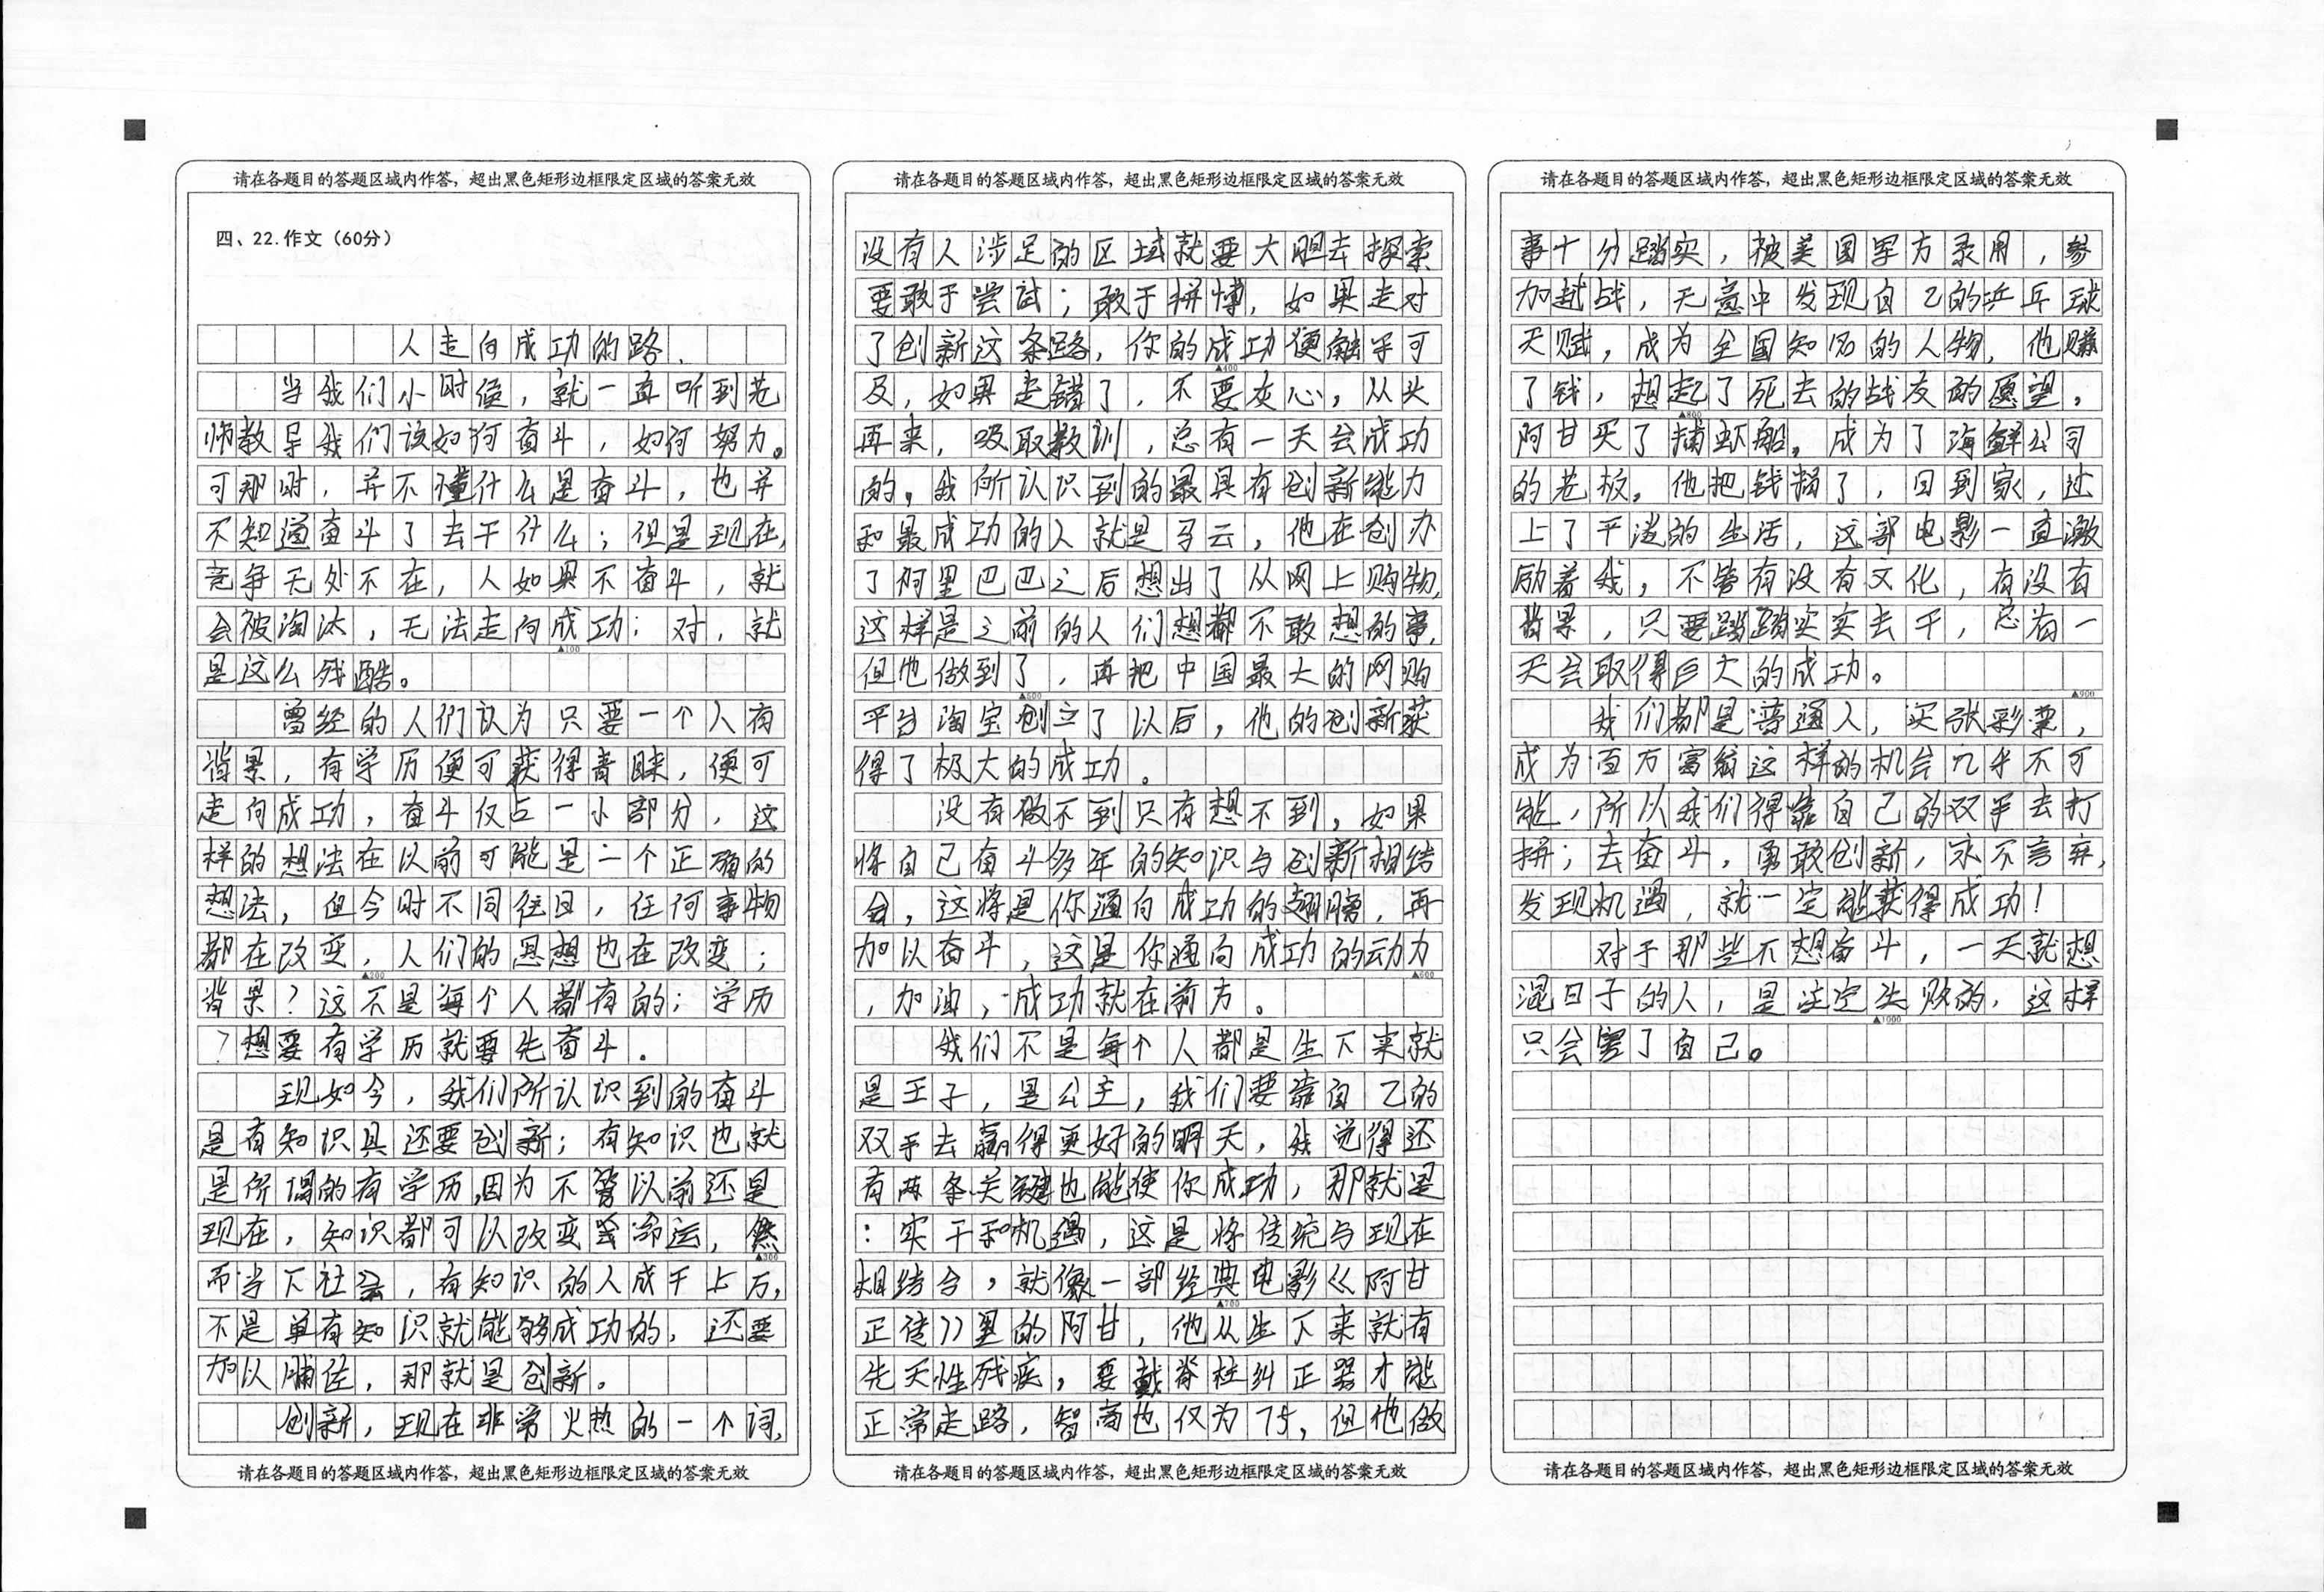 请在各题目的答题区域内作答，超出黑色矩形边框限定区域的答案无效
四、22.作文（60分）
人走向成功的路.
当我们小时侯，就一直听到老
师教导我们该如何奋斗，如何努力。
可那时，并不懂什么是奋斗，也并
不知道奋斗了去干什么；但是现在，
竞争无处不在，人如果不奋斗，就
会被淘汰，无法走向成功；对，就
▲100
是这么残酷。
曾经的人们认为只要一个人有
背景，有学历便可获得青睐，便可
走向成功，奋斗仅占一小部分，这
样的想法在以前可能是一个正确的
想法，但今时不同往日，任何事物
都在改变，人们的思想也在改变；
▲200
背景？这不是每个人都有的；学历
？想要有学历就要先奋斗。
现如今，我们所认识到的奋斗
是有知识具还要创新；有知识也就
是所谓的有学历，因为不管以前还是
现在，知识都可以改变命运，然
▲300
而当下社会，有知识的人成千上万，
不是单有知识就能够成功的，还要
加以辅佐，那就是创新。
创新，现在非常火热的一个词，
请在各题目的答题区域内作答，超出黑色矩形边框限定区域的答案无效
请在各题目的答题区域内作答，超出黑色矩形边框限定区域的答案无效
没有人涉足的区域就要大胆去探索
要敢于尝试；敢于拼博，如果走对
了创新这条路，你的成功便触手可
▲400
及，如果走错了，不要灰心，从头
再来，吸取教训，总有一天会成功
的。我所认识到的最具有创新能力
和最成功的人就是马云，他在创办
了阿里巴巴之后想出了从网上购物，
这样是之前的人们想都不敢想的事，
但他做到了，再把中国最大的网购
▲500
平台淘宝创立了以后，他的创新获
得了极大的成功。
没有做不到只有想不到，如果
将自己奋斗多年的知识与创新相结
合，这将是你通向成功的翅膀，再
加以奋斗，这是你通向成功的动力
▲600
，加油，成功就在前方。
我们不是每个人都是生下来就
是王子，是公主，我们要靠自己的
双手去赢得更好的明天，我觉得还
有两条关键也能使你成功，那就是
：实干和机遇，这是将传统与现在
相结合，就像一部经典电影《阿甘
▲700
正传》里的阿甘，他从生下来就有
先天性残疾，要戴脊柱纠正器才能
正常走路，智商也仅为75，但他做
请在各题目的答题区域内作答，超出黑色矩形边框限定区域的答案无效
请在各题目的答题区域内作答，超出黑色矩形边框限定区域的答案无效
事十分踏实，被美国军方录用，参
加越战，无意中发现自己的乒乓球
天赋，成为全国知名的人物，他赚
了钱，想起了死去的战友的愿望，
▲800
阿甘买了捕虾船，成为了海鲜公司
的老板。他把钱捐了，回到家，过
上了平淡的生活，这部电影一直激
励着我，不管有没有文化，有没有
背景，只要踏踏实实去干，总有一
天会取得巨大的成功。
▲900
我们都是普通人，买张彩票，
成为百万富翁这样的机会几乎不可
能，所以我们得靠自己的双手去打
拼；去奋斗，勇敢创新，永不言弃，
发现机遇，就一定能获得成功！
对于那些不想奋斗，一天就想
混日子的人，是注定失败的，这样
▲1000
只会害了自己。
请在各题目的答题区域内作答，超出黑色矩形边框限定区域的答案无效